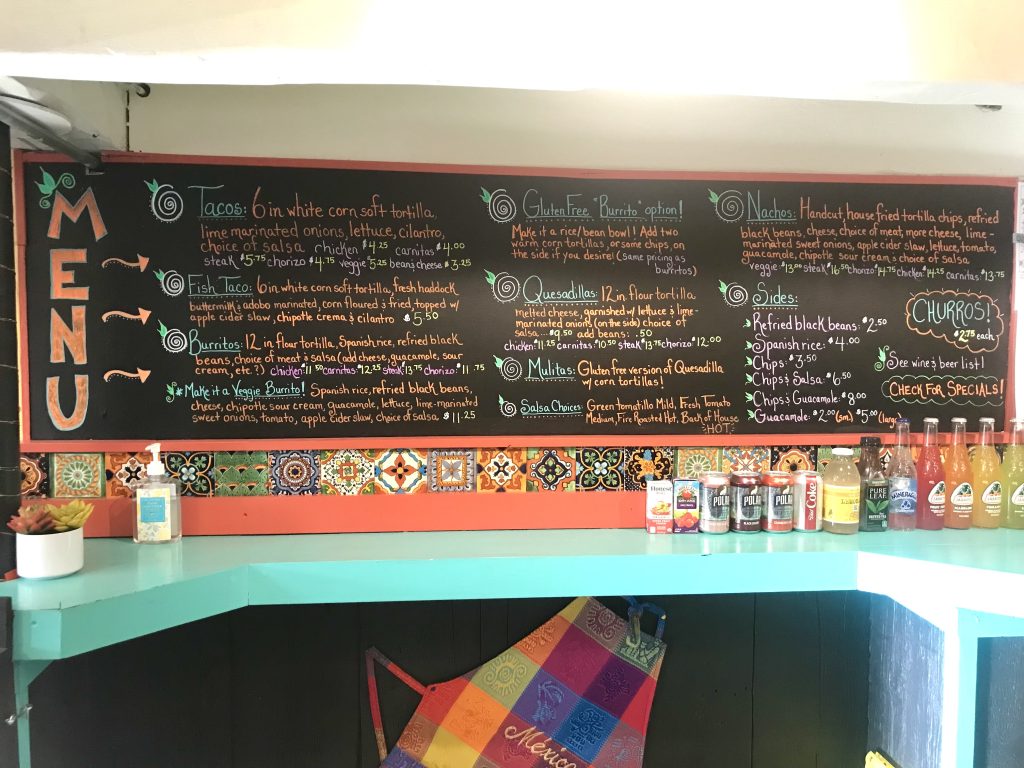 MENU
Tacos: 6 in white corn soft tortilla,
lime marinated onions, lettuce, cilantro,
choice of salsa chicken $4.25 carnitas $4.00
steak $5.75 chorizo $4.75 veggie $5.25 bean & cheese $3.25
Fish Taco: 6 in white corn soft tortilla, fresh haddock
buttermilk & adobo marinated, corn floured & fried, topped w/
apple cider slaw, chipotle crema & cilantro $5.50
Burritos: 12 in flour tortilla, Spanish rice, refried black
beans, choice of meat & salsa (add cheese, guacamole, sour
cream, etc.?) chicken $11.50 carnitas $12.25 steak $13.75 chorizo $11.75
*Make it a Veggie Burrito! Spanish rice, refried black beans,
cheese, chipotle sour cream, guacamole, lettuce, lime-marinated
sweet onions, tomato, apple cider slaw, choice of salsa $11.25
Gluten Free "Burrito" option!
Make it a rice/bean bowl! Add two
warm corn tortillas, or some chips, on
the side if you desire! (same pricing as
burritos)
Quesadillas: 12 in flour tortilla
melted cheese, garnished w/ lettuce & lime-
marinated onions (on the side) choice of
salsa....$9.50 add beans: .50
chicken: $11.25 carnitas: $10.50 steak $13.75 chorizo $12.00
Mulitas: Gluten free version of Quesadilla
w/ corn tortillas!
Salsa Choices: Green Tomatillo Mild, Fresh Tomato
Medium, Fire Roasted Hot, Back of House
HOT
Nachos: Handcut, house fried tortilla chips, refried
black beans, cheese, choice of meat, more cheese, lime-
marinated sweet onions, apple cider slaw, lettuce, tomato,
guacamole, chipotle sour cream & choice of salsa
veggie $13.00 steak $16.50 chorizo $14.75 chicken $14.25 carnitas $13.75
Sides:
Refried black beans: $2.50
Spanish rice: $4.00
Chips: $3.50
Chips & Salsa: $6.50
Chips & Guacamole: $8.00
Guacamole: $2.00 (sm) $5.00 (large)
CHURROS!
$2.75 each
See wine & beer list!
CHECK FOR SPECIALS!
Honest
POLAR
POLAR
POLAR
Coke
PURE LEAF
MINERAGUA
México